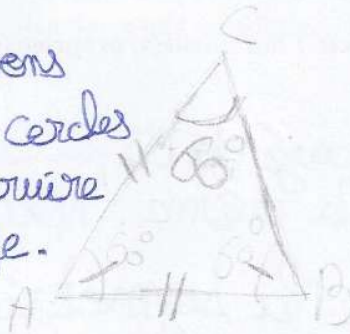 C
ons
cercles
ruire
e.
60°
60°
60°
A
B